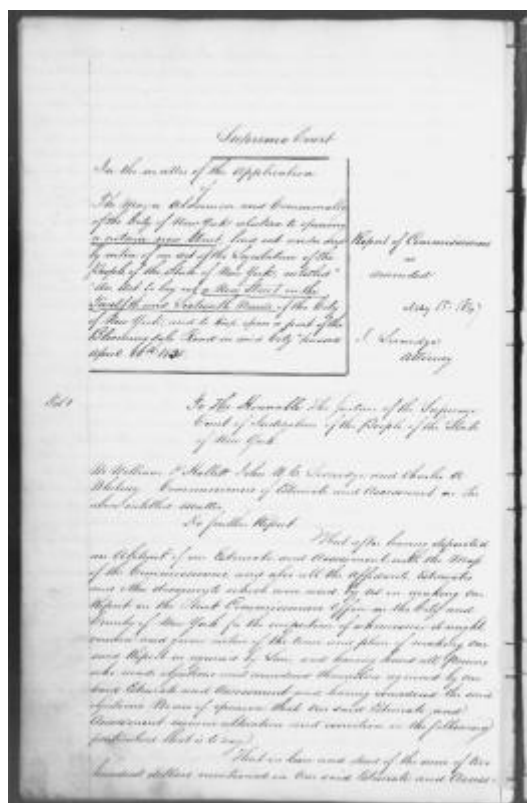 Supreme Court
In the matter of the Application
of
The Mayor Aldermen and Commonalty
of the City of New York relative to opening
a certain new Street, laid out under and
by virtue of an act of the Legislature of the
People of the State of New York, entitled
"An Act to lay out a New Street in the
Twelfth and Sixteenth Wards of the City
of New York, and to keep open a part of the
Bloomingdale Road in said City" passed
April
Report of Commissioners
as
amended
May 15
Attorney
To the Honorable The Justices of the Supreme
Court of Judicature of the People of the State
of New York
We William Hallett John and Charles
Commissioners of Estimate and Assessment in the
above entitled matter
Do further Report
That after having deposited
an Abstract of our Estimate and Assessment with the Map
of the Commissioners and also all the Affidavits Estimates
and other documents which were used by us in making our
Report in the Street Commissioners Office in the City and
County of New York for the inspection of whomsoever it might
concern and given notice of the time and place of making our
said Report as required by Law and having heard all Persons
who made objections and considered themselves aggrieved by our
said Estimate and Assessment and having considered the said
objections We are of opinion that our said Estimate and
Assessment require alteration and correction in the following
particulars that is to say
That in lieu and stead of the sum of
hundred dollars mentioned in our said Estimate and